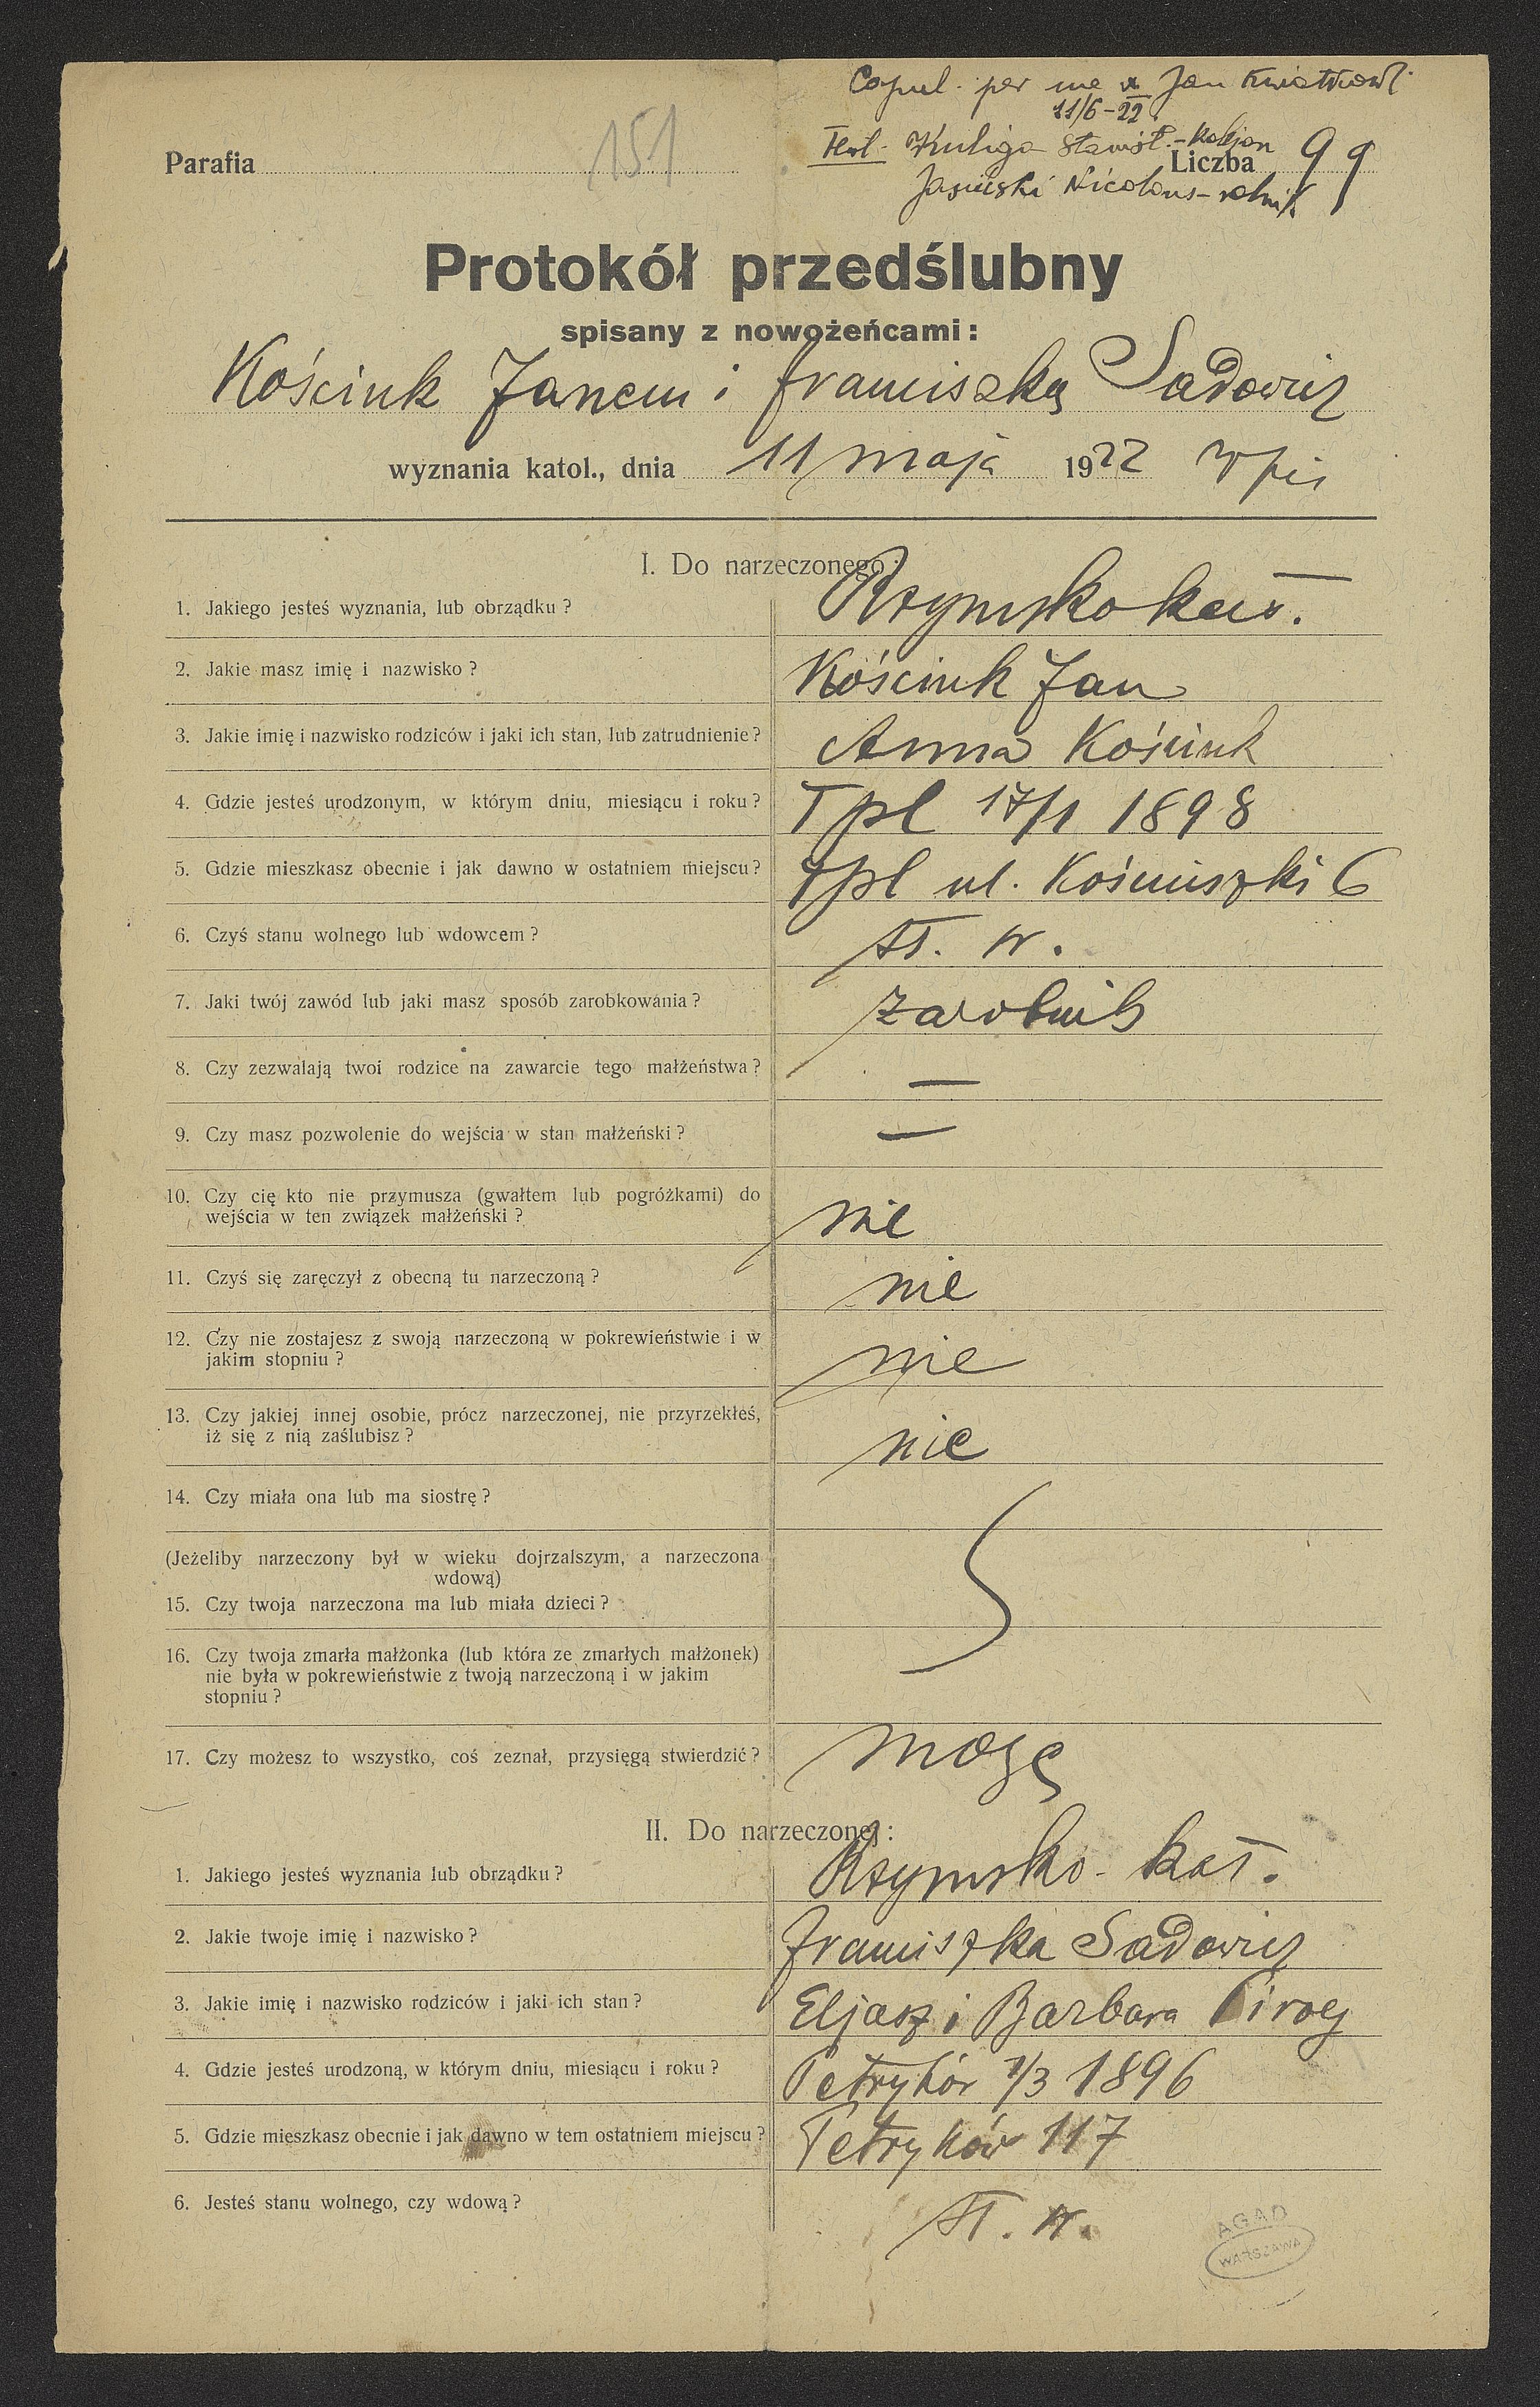 Copul. per me x Jan Kwiatkowski
11/6-22
Test. Kuliga Stanisł. - kolejarz
Parafia 151 Liczba 99
Jasiński Nicolaus - rolnik
Protokół przedślubny
spisany z nowożeńcami:
Kościuk Janem i Franciszką Sadowicz
wyznania katol., dnia 11 maja 1922
I. Do narzeczonego:
1. Jakiego jesteś wyznania, lub obrządku? Rzymsko kat.
2. Jakie masz imię i nazwisko? Kościuk Jan
3. Jakie imię i nazwisko rodziców i jaki ich stan, lub zatrudnienie? Anna Kościuk
4. Gdzie jesteś urodzonym, w którym dniu, miesiącu i roku? Tpl 17/1 1898
5. Gdzie mieszkasz obecnie i jak dawno w ostatniem miejscu? Tpl ul. Kościuszki 6
6. Czyś stanu wolnego lub wdowcem? st. w.
7. Jaki twój zawód lub jaki masz sposób zarobkowania? zarobnik
8. Czy zezwalają twoi rodzice na zawarcie tego małżeństwa? —
9. Czy masz pozwolenie do wejścia w stan małżeński? —
10. Czy cię kto nie przymusza (gwałtem lub pogróżkami) do
wejścia w ten związek małżeński? nie
11. Czyś się zaręczył z obecną tu narzeczoną? nie
12. Czy nie zostajesz z swoją narzeczoną w pokrewieństwie i w
jakim stopniu? nie
13. Czy jakiej innej osobie, prócz narzeczonej, nie przyrzekłeś,
iż się z nią zaślubisz? nie
14. Czy miała ona lub ma siostrę?
(Jeżeliby narzeczony był w wieku dojrzalszym, a narzeczona
wdową)
15. Czy twoja narzeczona ma lub miała dzieci?
16. Czy twoja zmarła małżonka (lub która ze zmarłych małżonek)
nie była w pokrewieństwie z twoją narzeczoną i w jakim
stopniu?
17. Czy możesz to wszystko, coś zeznał, przysięgą stwierdzić? mogę
II. Do narzeczonej:
1. Jakiego jesteś wyznania lub obrządku? Rzymsko-kat.
2. Jakie twoje imię i nazwisko? Franciszka Sadowicz
3. Jakie imię i nazwisko rodziców i jaki ich stan? Eljasz i Barbara Pirog
4. Gdzie jesteś urodzoną, w którym dniu, miesiącu i roku? Petryków 7/3 1896
5. Gdzie mieszkasz obecnie i jak dawno w tem ostatniem miejscu? Petryków 117
6. Jesteś stanu wolnego, czy wdową? st. w.
AGAD
WARSZAWA